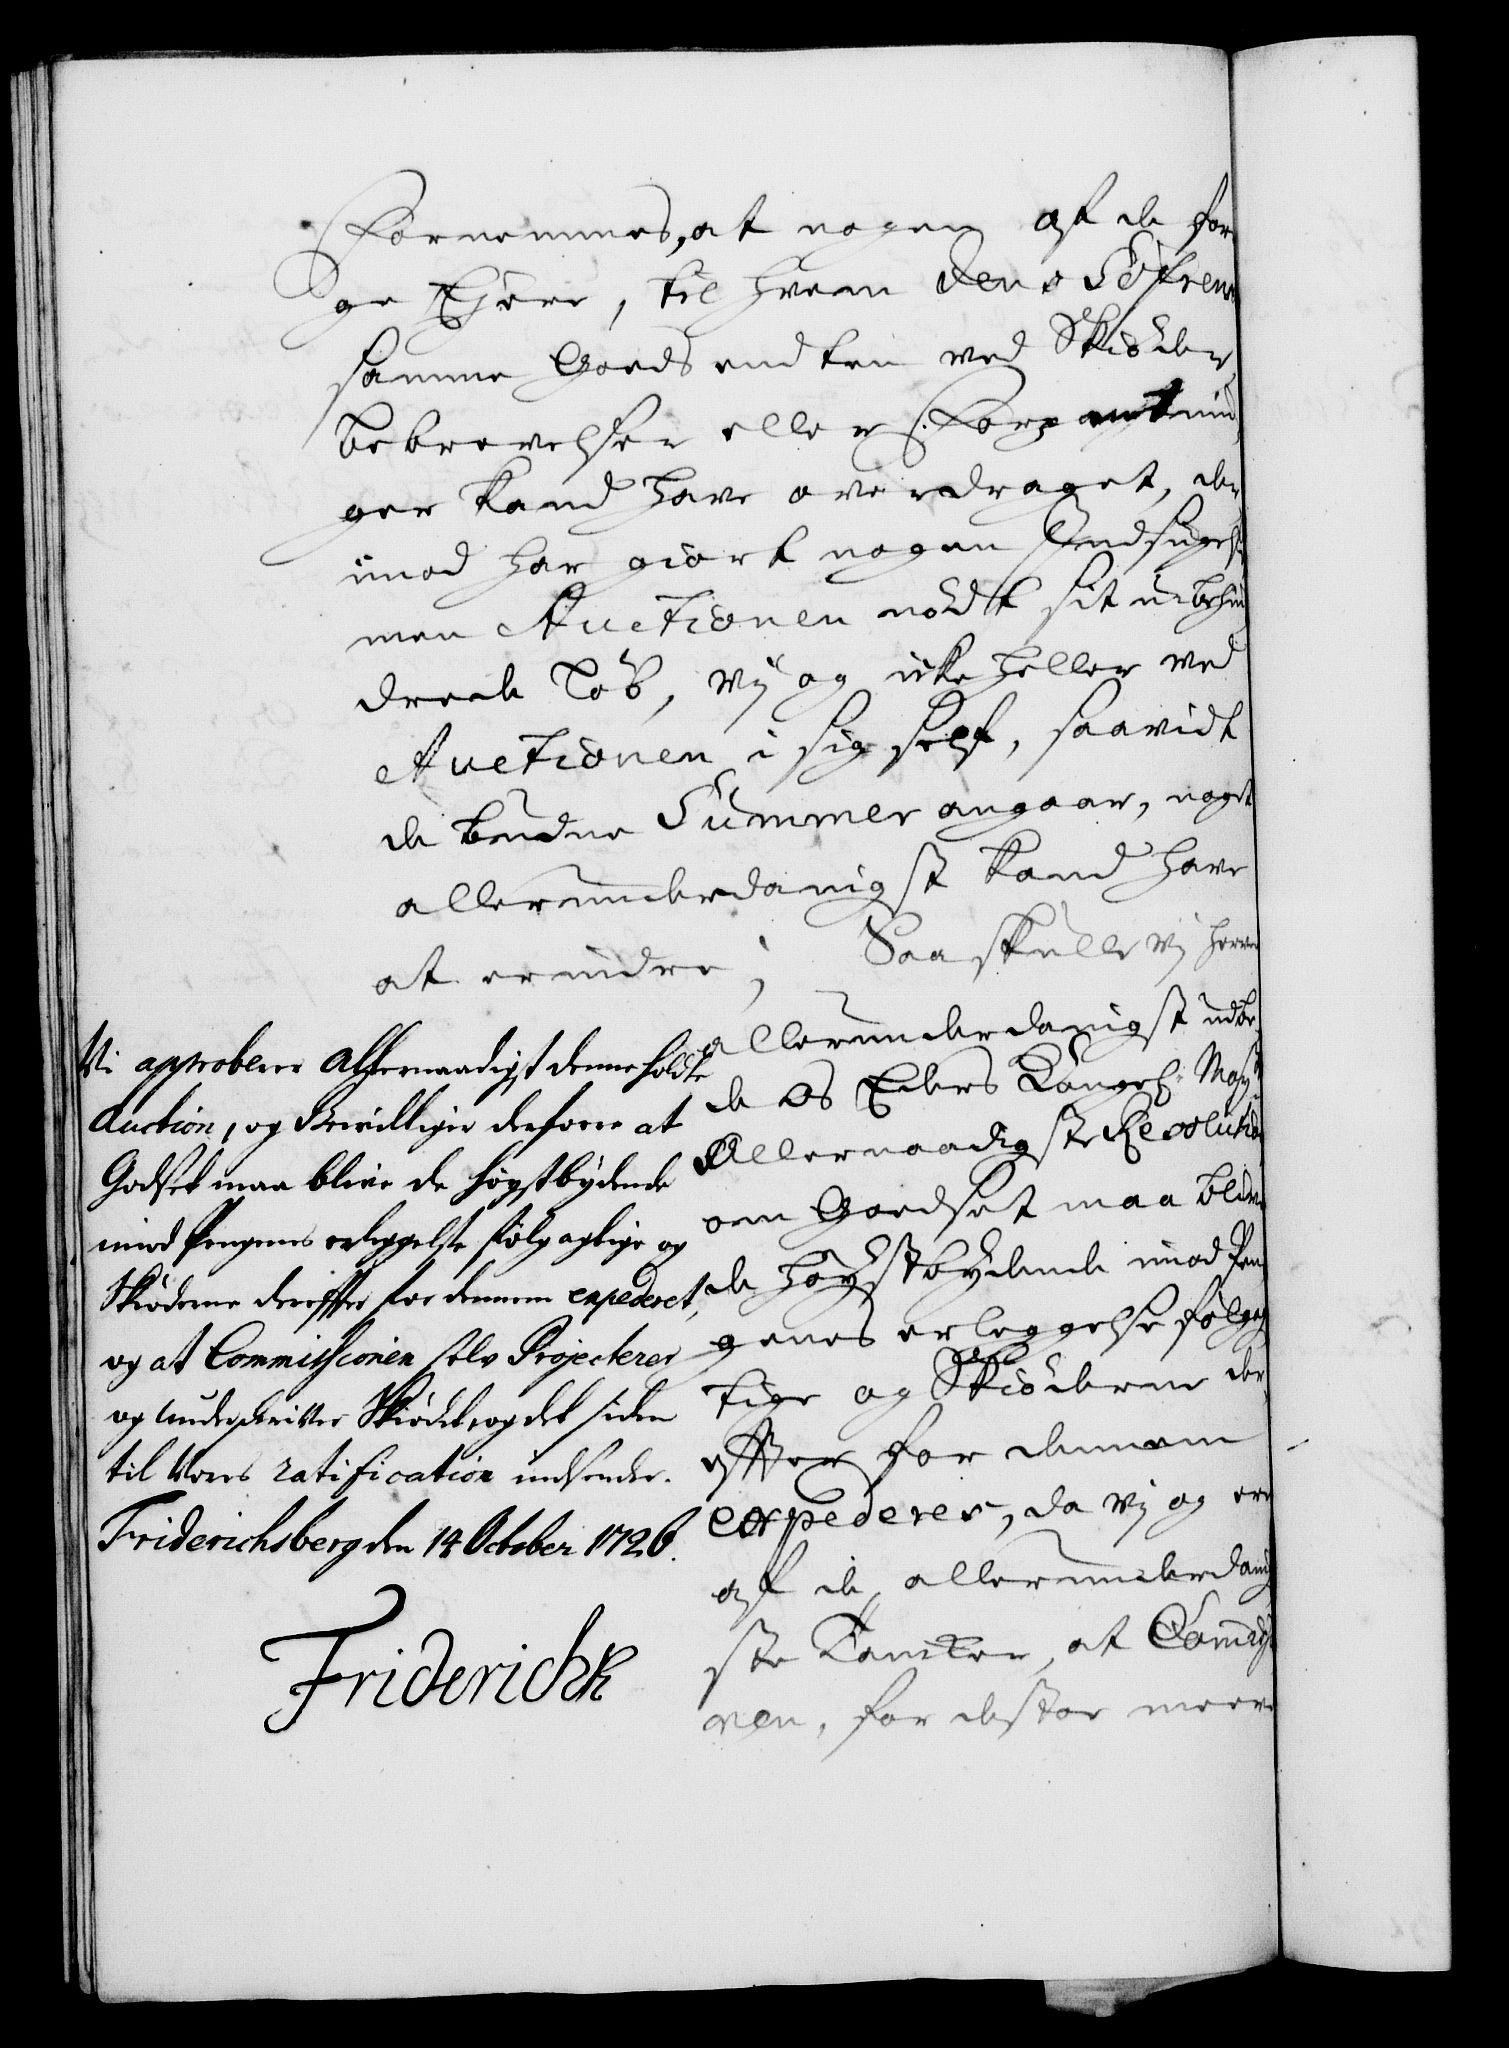 Fornemmes, at nogen af de for
ge Ejere, til hvem den
samme Goeds endten ved Skiøder,
bebrevelser eller Forpantnin,
ger kand have overdraget, der
imod har giort nogen Indsigelse
men Auctionen nødt sit ubehin
drede Løb, Vj og icke heller ved
Auctionen i sig self, saavidt
de budne Summer angaar, noget
allerunderdanigst kand have
at erindre; Saa skulle Vj herved
allerunderdanigst udbe
de os Eders Kongel: May:ts
Allernaadigste Resolution
om Goedset maa blive
de høystbydende imod Pen
genes erleggelse følgag
tige og Skiøderne der
effter for dennem
expederes, da Vj og ere
af de allerunderdanig
ste Tancker, at Commissi
onen, for destoe meere
Vi approberer Allernaadigst denne holdte
Auction, og Bevilliger derforre at
Godset maa blive de høystbydende
imod Pengenes erleggelse følgagtige og
Skiøderne dereffter for dennem expederet,
og at Commissionen selv Projecterer
og underskriver Skiødet, og det siden
til Vores ratification indsender.
Friderichsberg den 14 October 1726.
Friderich R